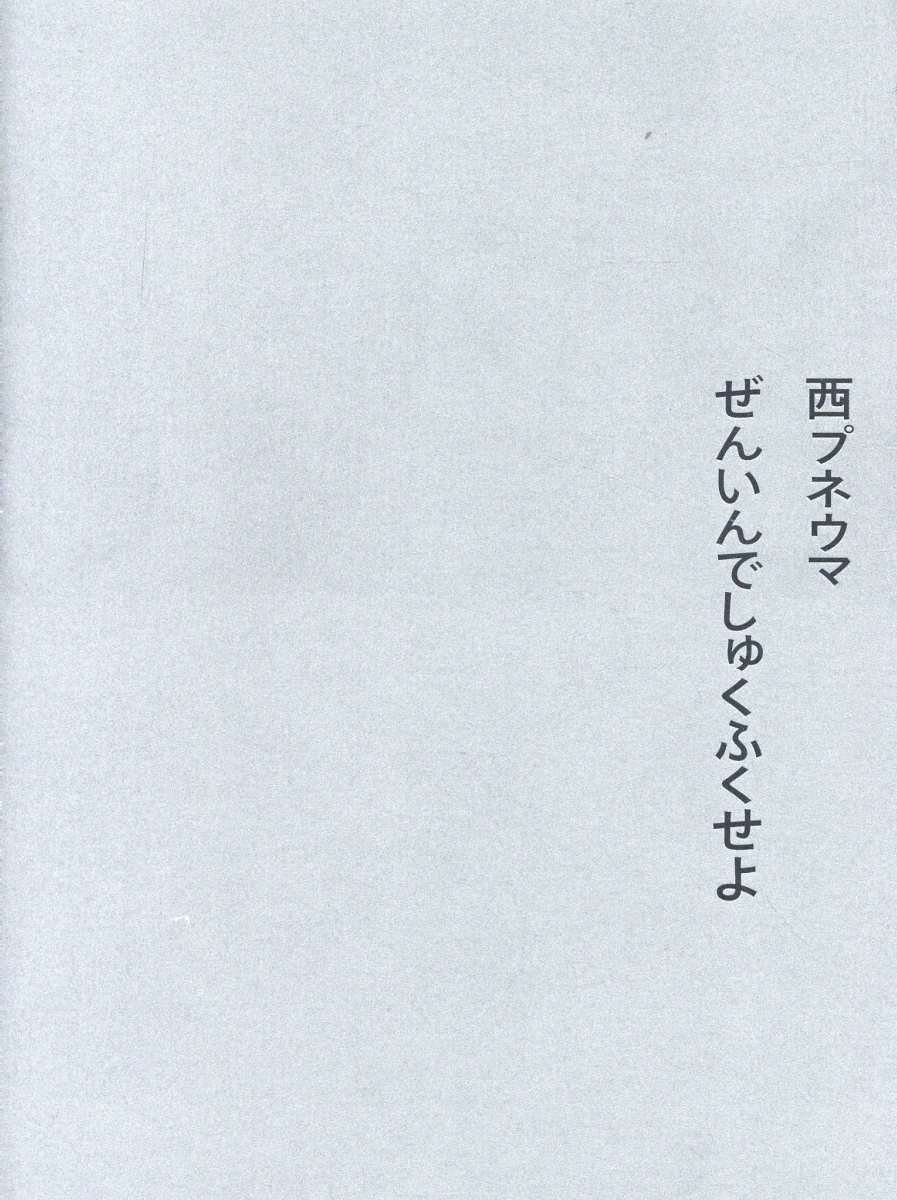 西プネウマ
ぜんいんでしゅくふくせよ